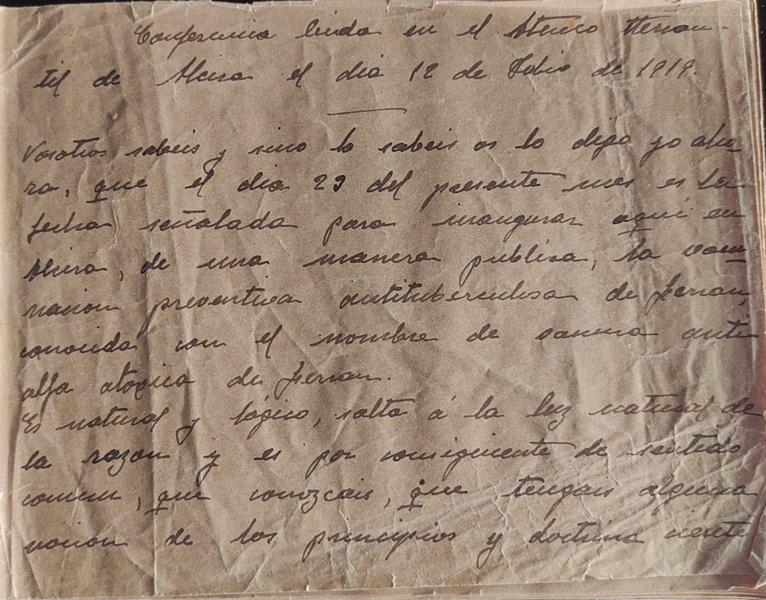 Conferencia leida en el Ateneo Mercan-
til de Alcira el dia 12 de Julio de 1919.
Vosotros sabeis y sino lo sabeis os lo digo yo aho
ra, que el dia 29 del presente mes es la
fecha señalada para inaugurar aqui en
Alcira, de una manera publica, la vacu
nacion preventiva antituberculosa de Ferran,
conocida con el nombre de vacuna anti
alfa atoxica de Ferran.
Es natural y lógico, salta á la luz natural de
la razon y es por consiguiente de sentido
comun, que conozcais, que tengais alguna
nocion de los principios y doctrina cienti